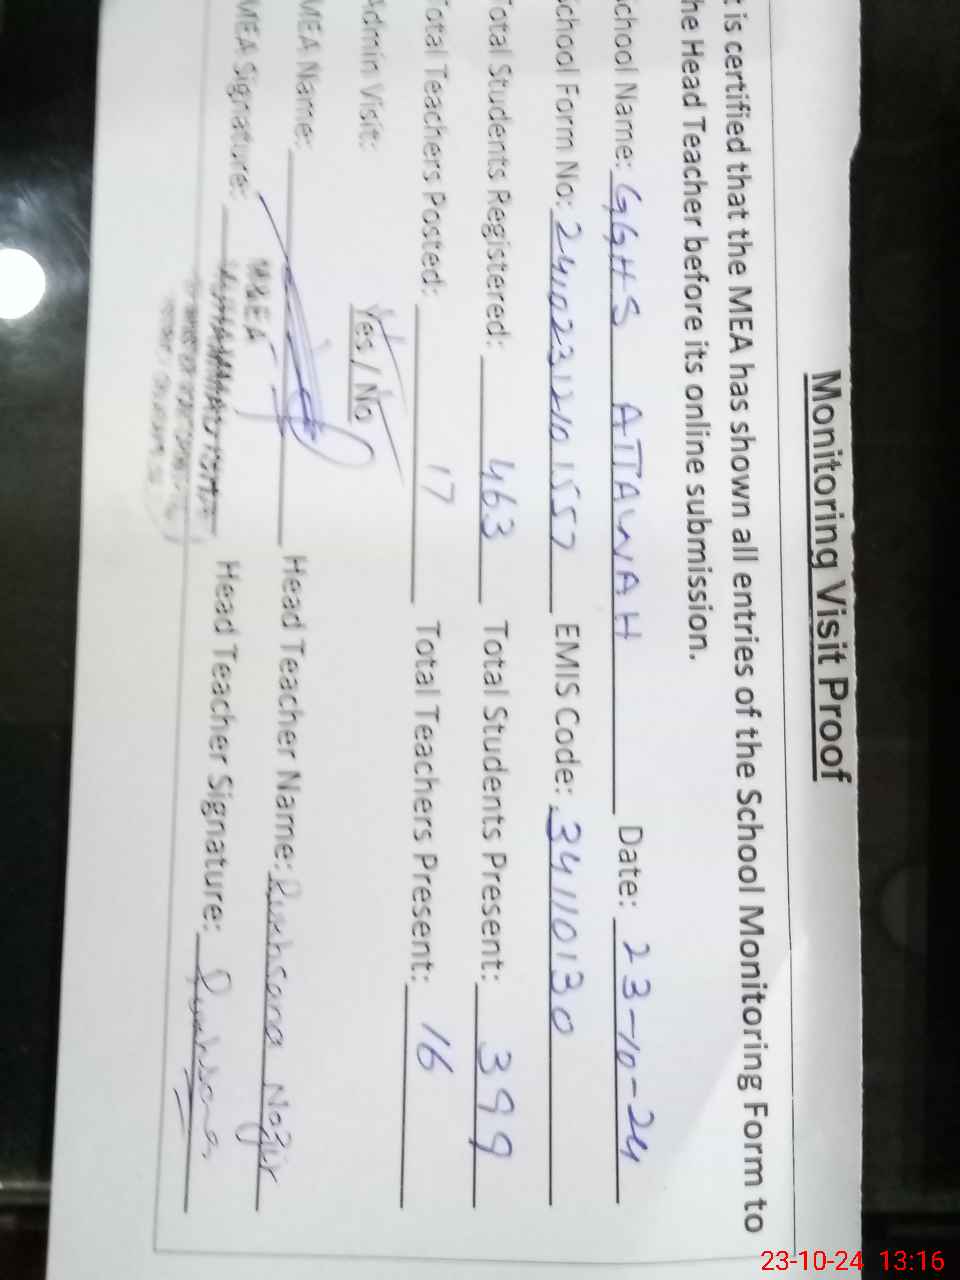 Monitoring Visit Proof
t is certified that the MEA has shown all entries of the School Monitoring Form to
he Head Teacher before its online submission.
chool Name: GGHS ATTAWAH Date: 23-10-24
chool Form No: EMIS Code: 34110130
otal Students Registered: 463 Total Students Present: 399
otal Teachers Posted: 17 Total Teachers Present: 16
Admin Visit: Yes / No
MEA Name: Head Teacher Name: Rukhsana Nazir
M&EA
MEA Signature: Head Teacher Signature: Rukhsana
23-10-24 13:16